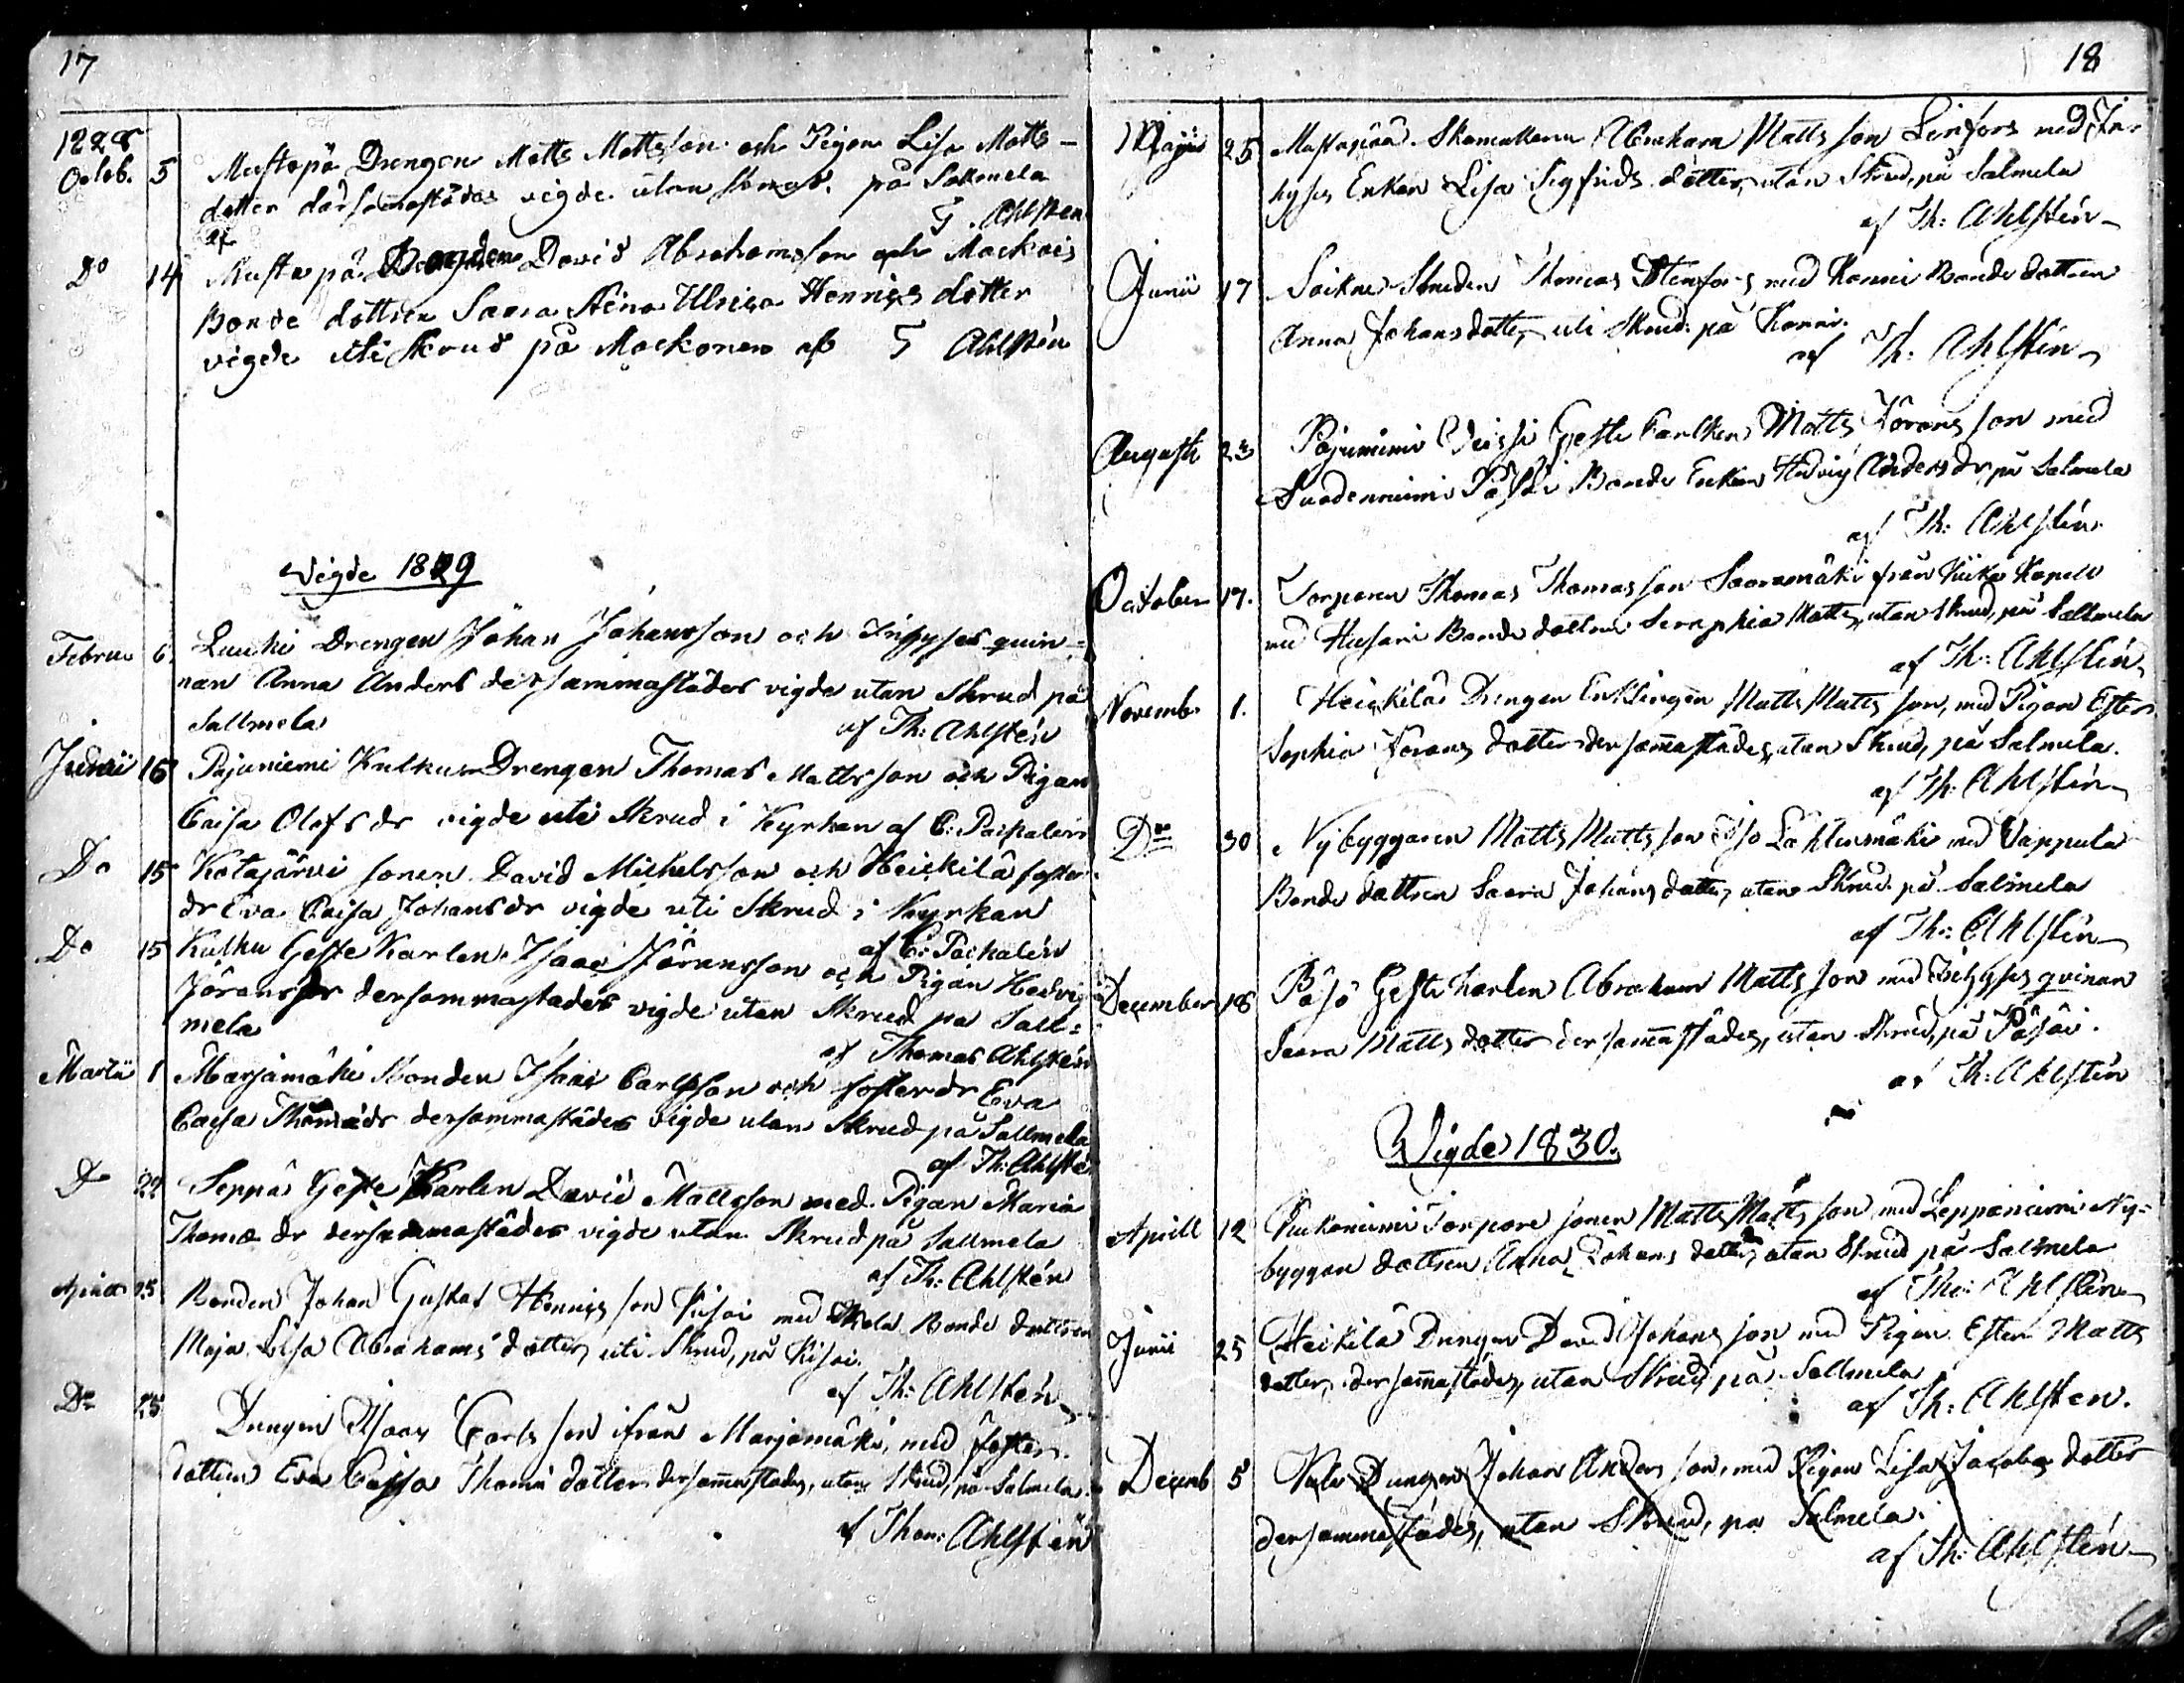 17
1828
Octob. 5 Mustapä Drengen Matts Mattsson och Pigan Lisa Matts-
dotter dersammastädes vigde utan skrud. på Salmela
af T. Ahlstén
Do 14 Mustapä Bonden David Abrahamsson och Mackois
Bonde dottren Saara Stina Ulrica Henrics dotter
vigde uti skrud på Mackonen af T Ahlstén
Vigde 1829
Februa 6. Luuki Drengen Johan Johansson och Inhyses quin=
nan Anna Anders dersammastädes vigde utan Skrud på
Sallmela af Th: Ahlstén
15 Pajuniemi Kulkun Drengen Thomas Mattsson och Pigan
Caisa Olofs dr vigde uti Skrud i Kyrkan af C: Paikalén
Do 15 Kotajärvi sonen David Michelsson och Heickilä foster
dr Eva Caisa Johans dr vigde uti Skrud i Kyrkan
af C: Paikalén
Do 15 Kulku Geste Karlen Isaac Jöransson och Pigan Hedvig
Jörans dr dersammastades vigde utan Skrud på Sall=
mela
af Thomas Ahlstén
Martii 1 Marjamäki Bonden Isaac Carlsson och foster dr Eva
Caisa Thomæ dr dersammastädes vigde utan Skrud på Sallmela
af Th: Ahlstén
Do 22 Seppä Geste Karlen David Mattsson med Pigan Maria
Thomæ dr dersammastädes vigde utan Skrud på Sallmela
af Th: Ahlstén
25 Bonden Johan Gustaf Henrics son Kisoi med Bonde dottren
Maja Lisa Abrahams dotter, uti Skrud, på Kisoi.
af Th: Ahlstén
Do 25 Drengen Isaac Carls son ifrån Marjamäki, med foster
dottren Eva Caisa Thomæ dotter dersammastades, utan Skrud, på Salmela.
af Thom: Ahlstén
18
Maji 25 Mustapää Skomakaren Abraham Matts son Linfors med In-
hyses Enkan Lisa Sigfrids dotter, utan Skrud, på Salmela
af Th: Ahlstén
Junii 17 Thomas Stenfors med Konni Bonde dottren
Anna Johans dotter, uti Skrud på Konni.
af Th: Ahlstén
Augusti 23 Pajuniemi Geste Carlken Matts Jörans son med
Bonde Enkan Hedvig Anders dr, på Salmela
af Th: Ahlstén
October 17. Torparen Thomas Thomas son Saaramäki från Kapell
med Husari Bonde dottren Seraphia Matts, utan Skrud, på Sallmela
af Th: Ahlstén
Novemb. 1. Heickilä Drengen Enklingen Matts Matts son, med Pigan Ester
Sophia Jörans dotter dersammastädes, utan Skrud, på Salmela.
af Th: Ahlstén
Do 30 Nybyggaren Matts Matts son Iso Lahtenmäki med Vappula
Bonde dottren Saara Johans dotter, utan Skrud på Salmela
af Th: Ahlstén
December 18 Påsö Geste karlen Abraham Matts son med Inhyses qvinan
Saara Matts dotter dersammastädes, utan Skrud, på Påsöi.
af Th: Ahlstén
Vigde 1830.
Aprill 12 Torpare sonen Matts Matts son med Leppäniemi Ny=
byggare dottren Anna Johans dotter, utan Skrud på Salmela
af Tho: Ahlstén
Junii 25 Heikilä Drengen David Johans son med Pigan Ester Matts
dotter, dersammastades, utan Skrud på Sallmela
af Th: Ahlsten.
Decemb 5 Drengen Johan Anders son, med Pigan Lisa Jacobs dotter
dersammastädes, utan Skrud, på Salmela.
af Th: Ahlstén